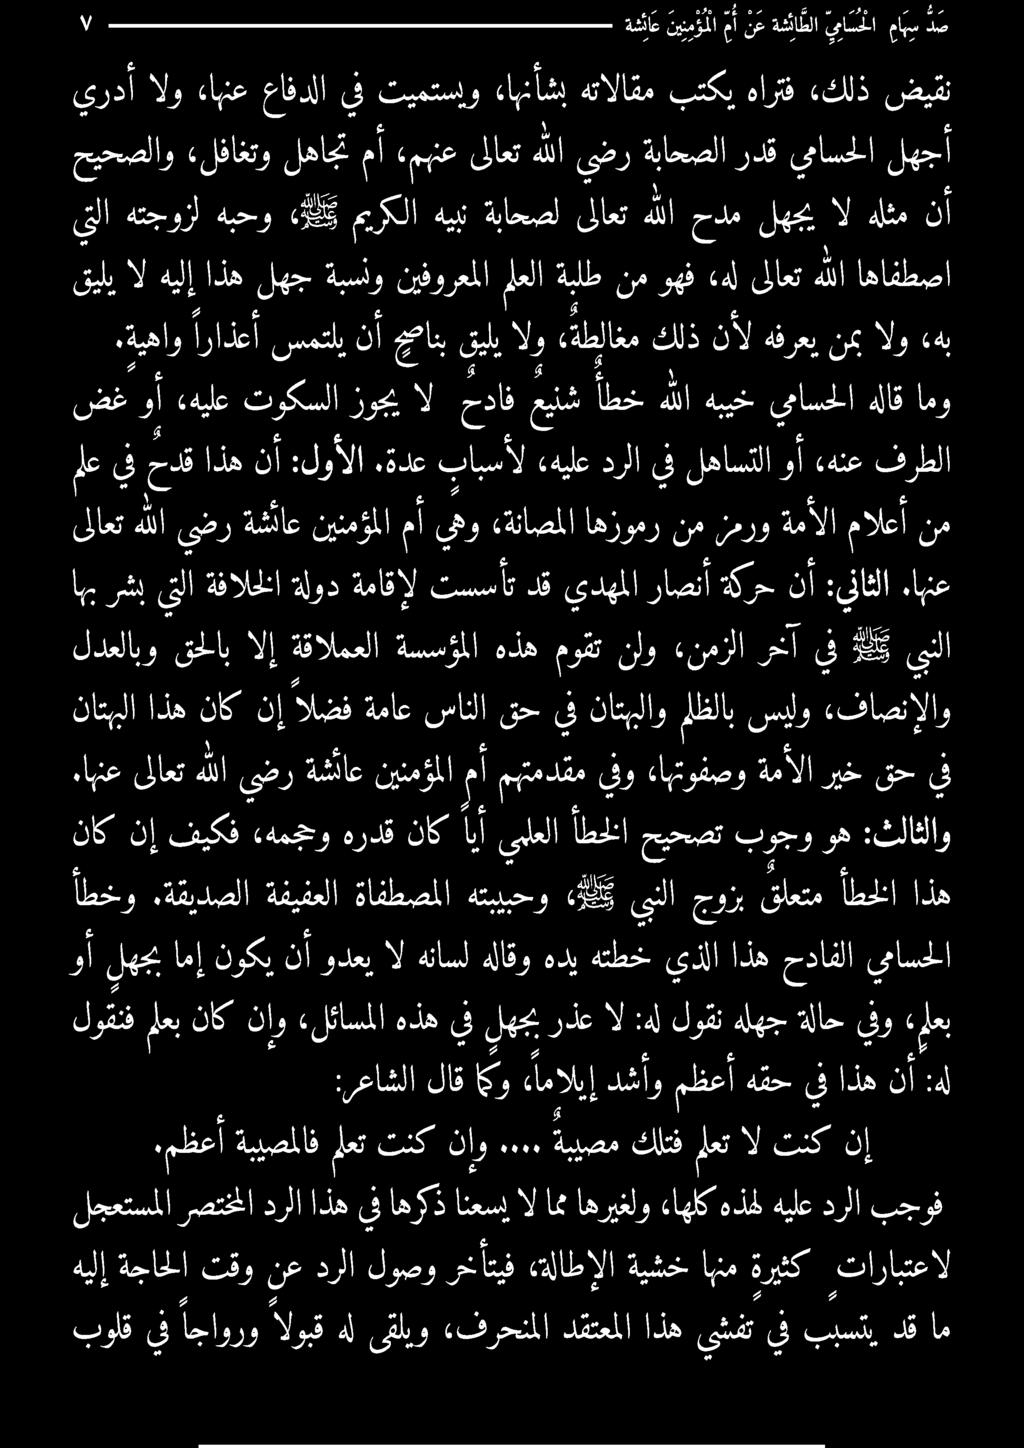 صَدُّ سِهَامِ الْحُسَامِيِّ الطَّائِشة عَنْ أُمِّ الْمُؤْمِنِينَ عَائِشة ٧
نقيض ذلك، فتراه يكتب مقالاته بشأنها، ويستميت في الدفاع عنها، ولا أدري
أجهل الحسامي قدر الصحابة رضي الله تعالى عنهم، أم تجاهل وتغافل، والصحيح
أن مثله لا يجهل مدح الله تعالى لصحابة نبيه الكريم ﷺ، وحبه لزوجته التي
اصطفاها الله تعالى له، فهو من طلبة العلم المعروفين ونسبة جهل هذا إليه لا يليق
به، ولا بمن يعرفه لأن ذلك مغالطةٌ، ولا يليق بناصحٍ أن يلتمس أعذاراً واهيةٍ.
وما قاله الحسامي خيبه الله خطأٌ شنيعٌ فادحٌ لا يجوز السكوت عليه، أو غض
الطرف عنه، أو التساهل في الرد عليه، لأسبابٍ عدة. الأول: أن هذا قدحٌ في علم
من أعلام الأمة ورمز من رموزها المصانة، وهي أم المؤمنين عائشة رضي الله تعالى
عنها. الثاني: أن حركة أنصار المهدي قد تأسست لإقامة دولة الخلافة التي بشر بها
النبي ﷺ في آخر الزمن، ولن تقوم هذه المؤسسة العملاقة إلا بالحق وبالعدل
والإنصاف، وليس بالظلم والبهتان في حق الناس عامة فضلاً إن كان هذا البهتان
في حق خير الأمة وصفوتها، وفي مقدمتهم أم المؤمنين عائشة رضي الله تعالى عنها.
والثالث: هو وجوب تصحيح الخطأ العلمي أياً كان قدره وحجمه، فكيف إن كان
هذا الخطأ متعلقٌ بزوج النبي ﷺ، وحبيبته المصطفاة العفيفة الصديقة. وخطأ
الحسامي الفادح هذا الذي خطته يده وقاله لسانه لا يعدو أن يكون إما بجهلٍ أو
بعلمٍ، وفي حالة جهله نقول له: لا عذر بجهلٍ في هذه المسائل، وإن كان بعلم فنقول
له: أن هذا في حقه أعظم وأشد إيلاماً، وكما قال الشاعر:
إن كنت لا تعلم فتلك مصيبةٌ .... وإن كنت تعلم فالمصيبة أعظم.
فوجب الرد عليه لهذه كلها، ولغيرها مما لا يسعنا ذكرها في هذا الرد المختصر المستعجل
لاعتباراتٍ كثيرةٍ منها خشية الإطالة، فيتأخر وصول الرد عن وقت الحاجة إليه
ما قد يتسبب في تفشي هذا المعتقد المنحرف، ويلقى له قبولاً ورواجاً في قلوب